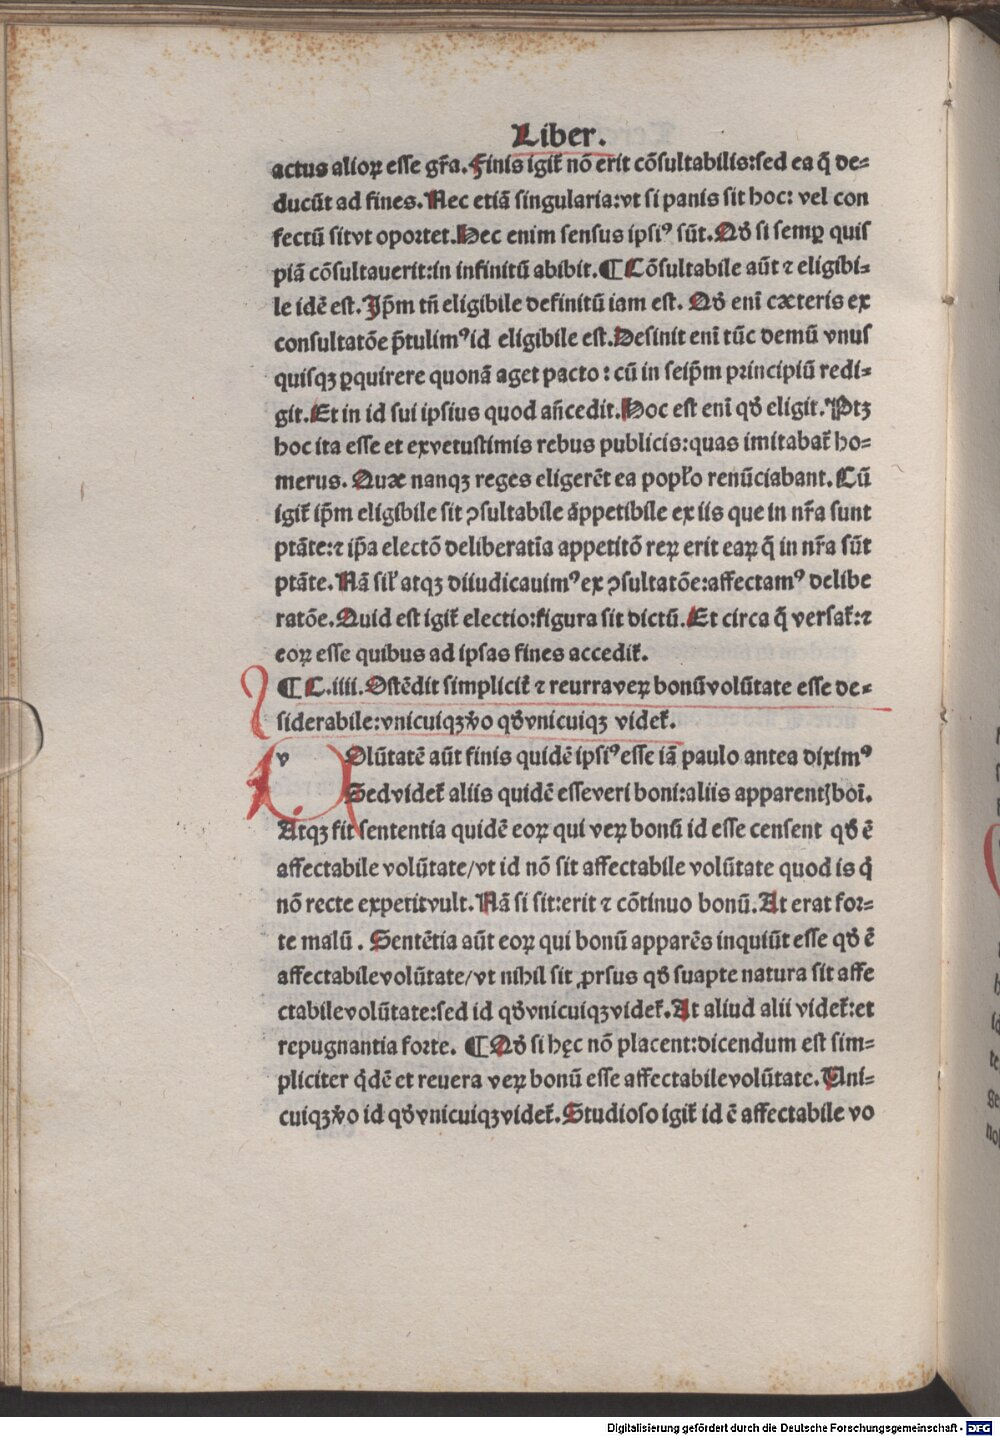 Liber.
actus alioꝝ esse gr̃a. Finis igit̃ nō erit cōsultabilis: sed ea q̄ de⸗
ducūt ad fines. Nec etiā singularia: vt si panis sit hoc: vel con
fectū sit vt oportet. Hec enim sensus ipsiꝰ sūt. Qđ si semꝑ quis
piā cōsultauerit: in infinitū abibit. ¶ Cōsultabile aūt ⁊ eligibi⸗
le idē est. Ip̄m tn̄ eligibile definitū iam est. Qđ enī cæteris ex
consultatōe p̄tulimꝰ id eligibile est. Desinit enī tūc demū vnus
quisqꝫ ꝑquirere quonā aget pacto: cū in seip̄m principiū redi⸗
git. Et in id sui ipsius quod an̄cedit. Hoc est enī qđ eligit. Ptꝫ
hoc ita esse et ex vetustimis rebus publicis: quas imitabat̃ ho⸗
merus. Quæ nanqꝫ reges eligerēt ea popl̃o renūciabant. Cū
igit̃ ip̄m eligibile sit ꝯsultabile appetibile ex iis que in nr̃a sunt
ptāte: ⁊ ip̄a electō deliberatīa appetitō reꝝ erit eaꝝ q̄ in nr̃a sūt
ptāte. Nā sil̃ atqꝫ diiudicauimꝰ ex ꝯsultatōe: affectamꝰ delibe
ratōe. Quid est igit̃ electio: figura sit dictū. Et circa q̄ versat̃: ⁊
eoꝝ esse quibus ad ipsas fines accedit̃.
¶ C. iiii. Ostēdit simplicit̃ ⁊ reurra veꝝ bonū volūtate esse de⸗
siderabile: vnicuiqꝫ v̆o qđ vnicuiqꝫ videt̃.
v Olūtatē aūt finis quidē ipsiꝰ esse iā paulo antea diximꝰ
Sed videt̃ aliis quidē esse veri boni: aliis apparentꝭ boī.
Atqꝫ fit sententia quidē eoꝝ qui veꝝ bonū id esse censent qđ ē
affectabile volūtate/ vt id nō sit affectabile volūtate quod is q̇
nō recte expetit vult. Nā si sit: erit ⁊ cōtinuo bonū. At erat for⸗
te malū. Sentētia aūt eoꝝ qui bonū apparēs inquiūt esse qđ ē
affectabile volūtate/ vt nihil sit ꝓrsus qđ suapte natura sit affe
ctabile volūtate: sed id qđ vnicuiqꝫ videt̃. At aliud alii videt̃: et
repugnantia forte. ¶ Qđ si hęc nō placent: dicendum est sim⸗
pliciter q̇dē et reuera veꝝ bonū esse affectabile volūtate. Vni⸗
cuiqꝫ v̆o id qđ vnicuiqꝫ videt̃. Studioso igit̃ id ē affectabile vo
Digitalisierung gefördert durch die Deutsche Forschungsgemeinschaft - DFG